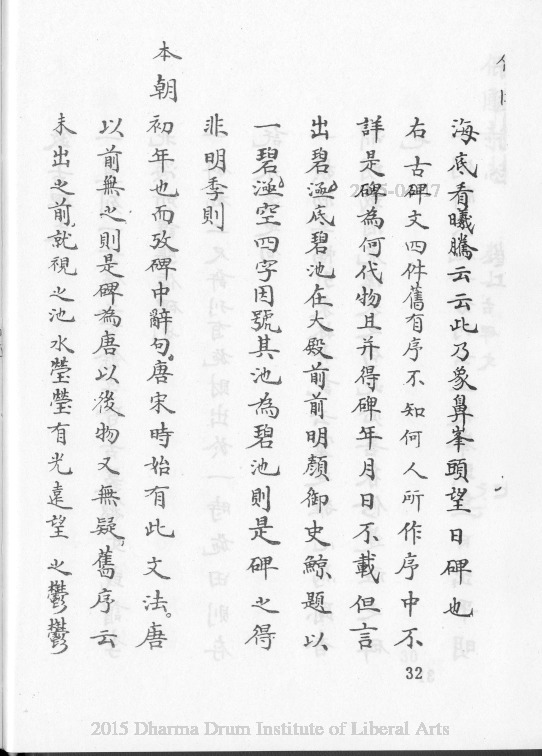 海底看曦騰云云此乃象鼻峯頭望日碑也
右古碑文四件舊有序不知何人所作序中不
詳是碑為何代物且并得碑年月日不載但言
出碧湓底碧池在大殿前前明顏御史鯨題以
一碧湓空四字因號其池為碧池則是碑之得
非明季則
本朝初年也而攷碑中辭句唐宋時始有此文法。唐
以前無之則是碑為唐以後物又無疑舊序云
未出之前就視之池水瑩瑩有光遠望之鬱鬱
32
2015 Dharma Drum Institute of Liberal Arts